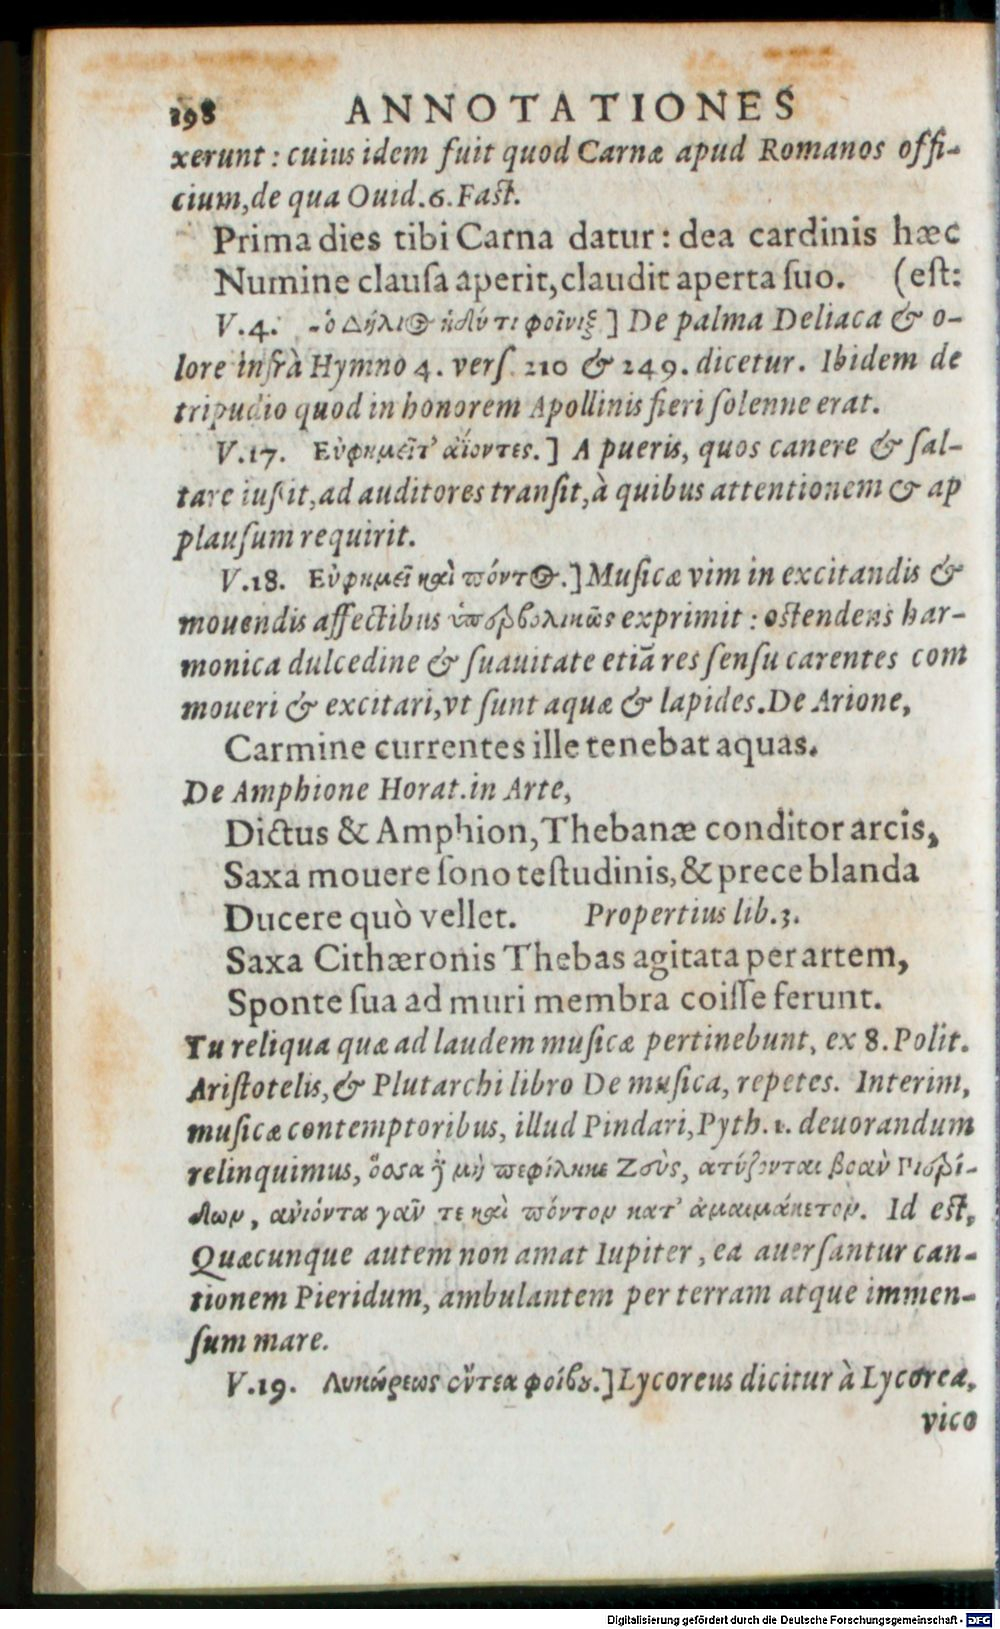 198 ANNOTATIONES
xerunt : cuius idem fuit quod Carnæ apud Romanos offi-
cium, de qua Ouid. 6. Fast.
Prima dies tibi Carna datur : dea cardinis hæc
Numine clausa aperit, claudit aperta suo. (est:
V. 4. -ὁ Δήλιος ἡδύ τι φοῖνιξ ] De palma Deliaca & o-
lore infrà Hymno 4. vers 210 & 249. dicetur. Ibidem de
tripudio quod in honorem Apollinis fieri solenne erat.
V. 17. Εὐφημεῖτ' ἀΐοντες. ] A pueris, quos canere & sal-
tare iussit, ad auditores transit, à quibus attentionem & ap
plausum requirit.
V. 18. Εὐφημεῖ καὶ πόντος. ] Musicæ vim in excitandis &
mouendis affectibus ὑπερβολικῶς exprimit : ostendens har-
monica dulcedine & suauitate etiã res sensu carentes com
moueri & excitari, vt sunt aquæ & lapides. De Arione,
Carmine currentes ille tenebat aquas.
De Amphione Horat. in Arte,
Dictus & Amphion, Thebanæ conditor arcis,
Saxa mouere sono testudinis, & prece blanda
Ducere quò vellet. Propertius lib. 3.
Saxa Cithæronis Thebas agitata per artem,
Sponte sua ad muri membra coisse ferunt.
Tu reliqua quæ ad laudem musicæ pertinebunt, ex 8. Polit.
Aristotelis, & Plutarchi libro De musica, repetes. Interim,
musicæ contemptoribus, illud Pindari, Pyth. 1. deuorandum
relinquimus, ὅοσα ἢ μὴ πεφίληκε Ζεὺς, ἀτύζονται βοὰν Πιερί-
δων, ἀϊόντα γᾶν τε καὶ πόντον κατ' ἀμαιμάκετον. Id est,
Quæcunque autem non amat Iupiter, ea auersantur can-
tionem Pieridum, ambulantem per terram atque immen-
sum mare.
V. 19. Λυκώρεως ἔντεα φοίβου. ] Lycoreus dicitur à Lycorea,
vico
Digitalisierung gefördert durch die Deutsche Forschungsgemeinschaft - DFG